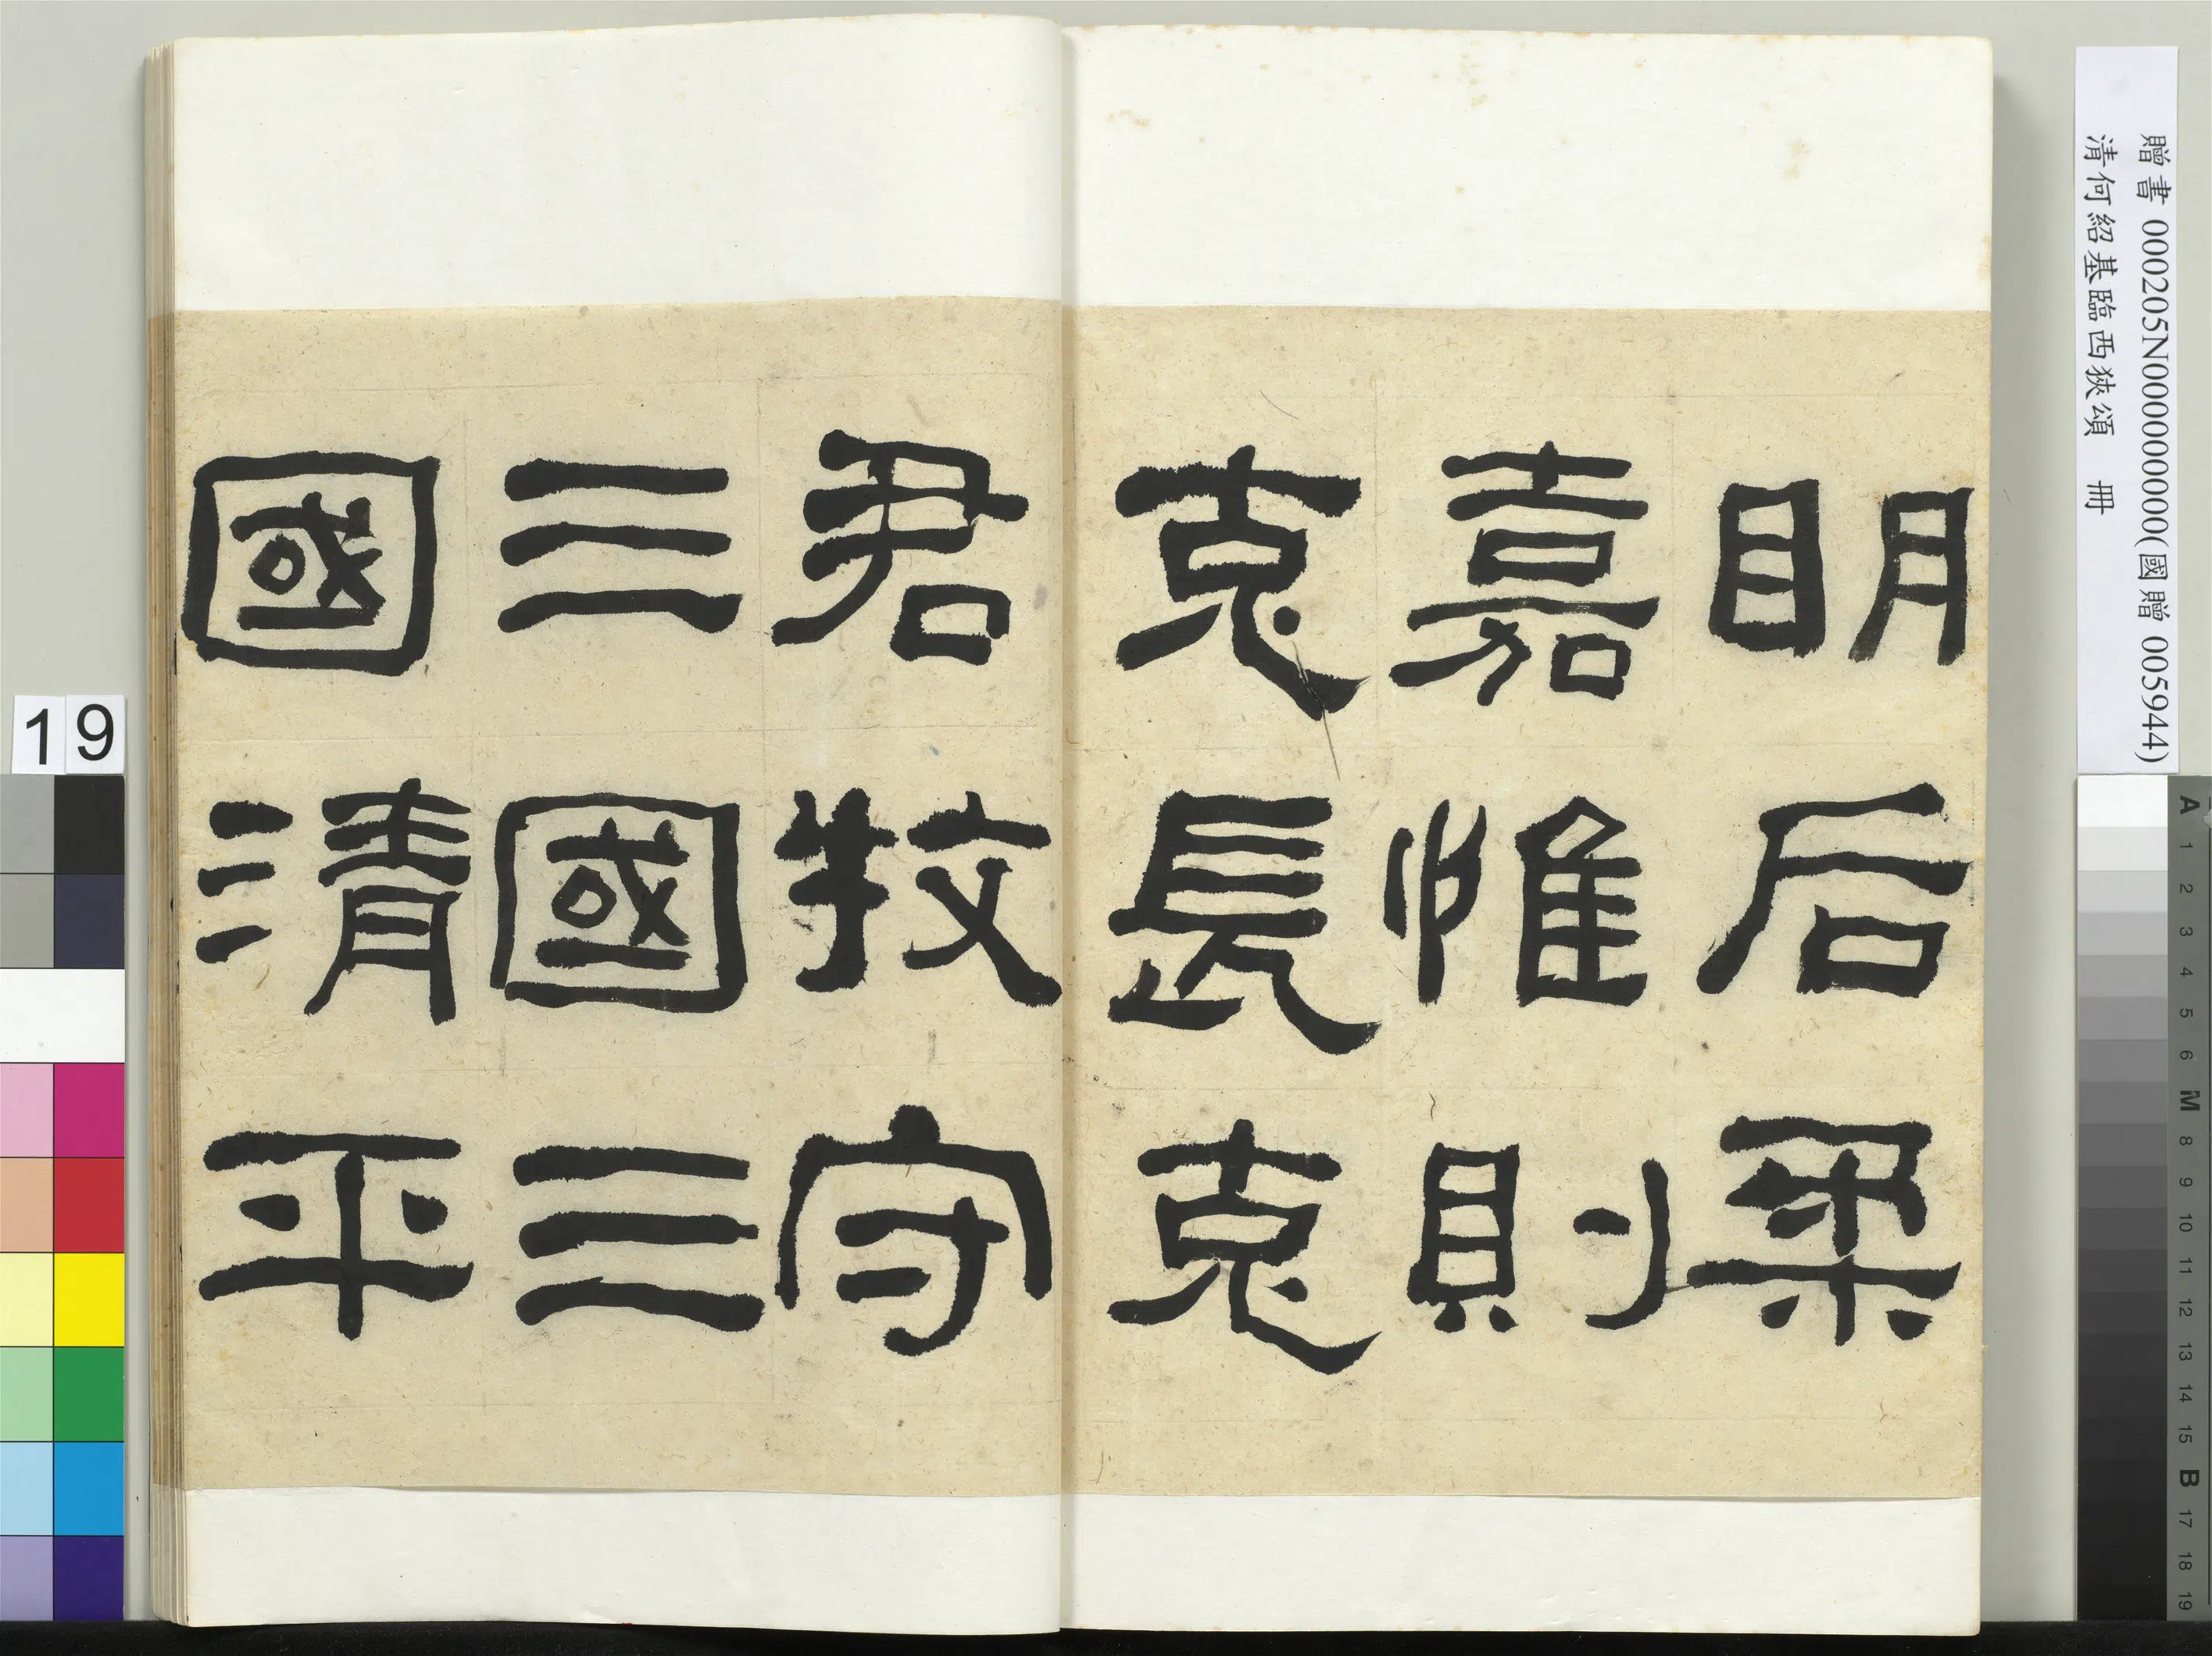 贈書 000205N000000000(國贈 005944)
清何紹基臨西狹頌 冊
明后柔
嘉惟則
克長克
君牧守
三國三
國清平
19
A 1 2 3 4 5 6 M 8 9 10 11 12 13 14 15 B 17 18 19